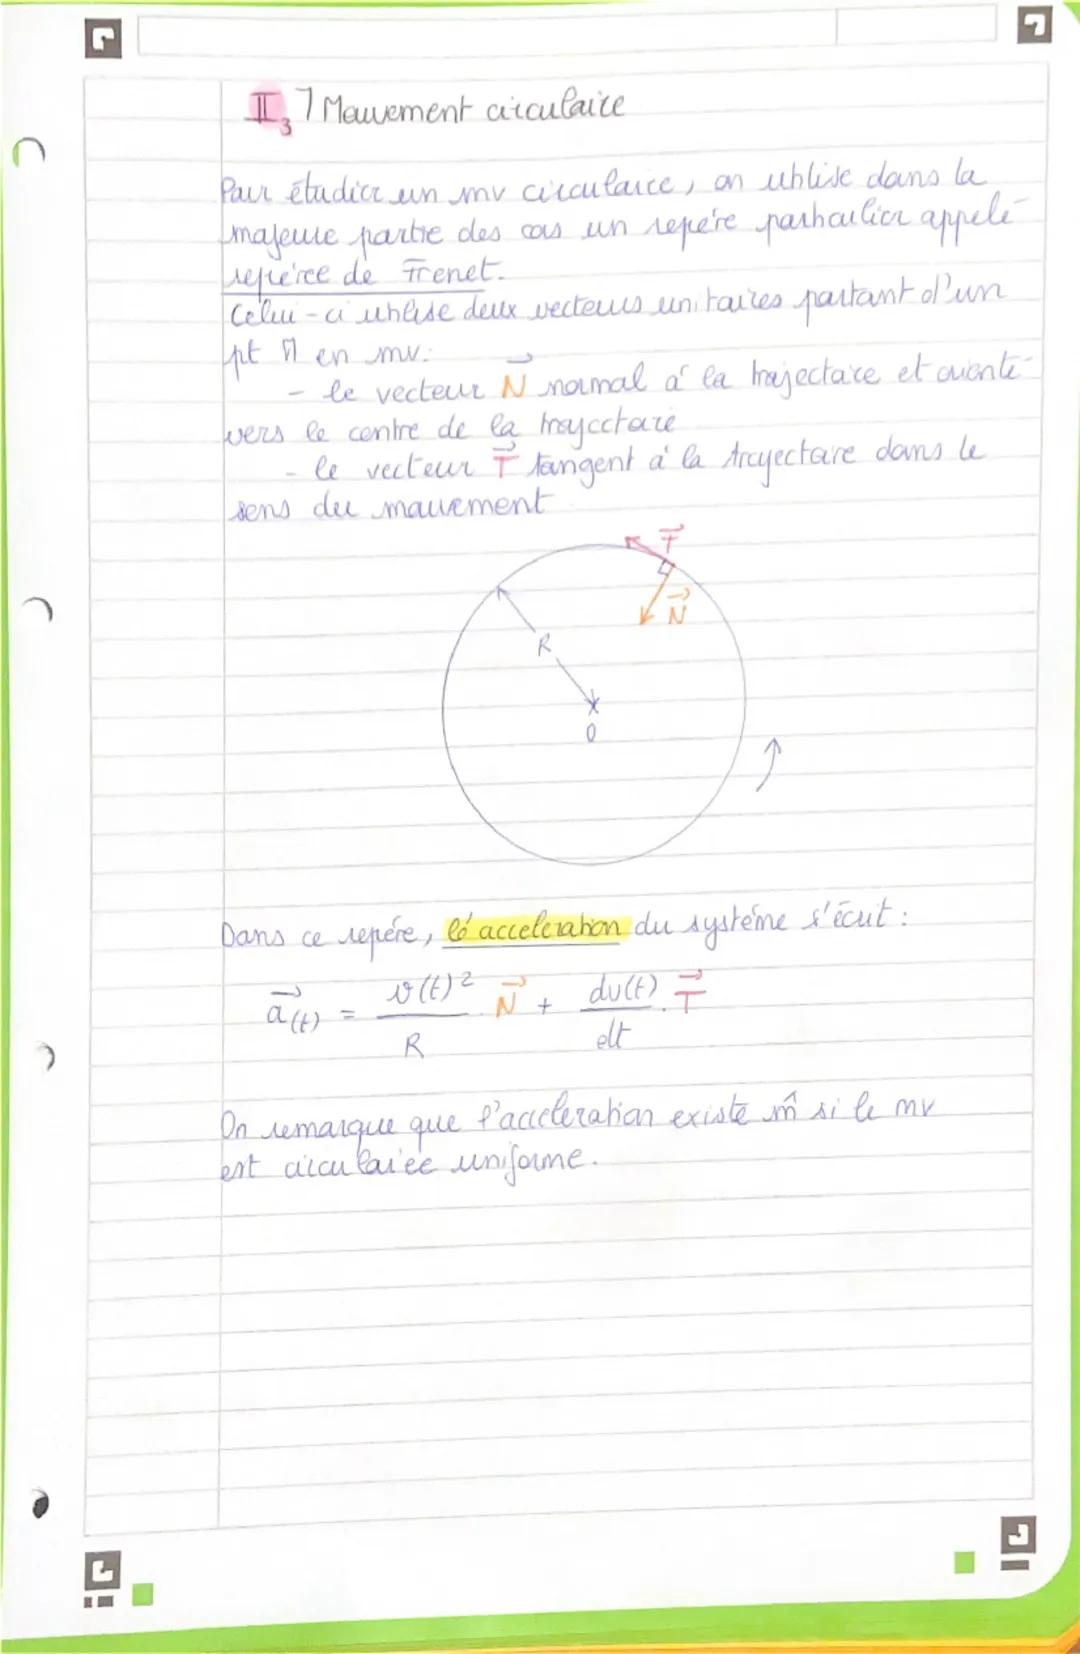 II₃ 7 Mouvement circulaire
Pour étudier un mv circulaire, on utilise dans la
majeure partie des cas un repère particulier appelé
repère de Frenet.
Celui-ci utilise deux vecteurs unitaires partant d'un
pt M en mv:
- le vecteur N⃗ normal à la trajectoire et orienté
vers le centre de la trajectoire
- le vecteur T⃗ tangent à la trajectoire dans le
sens du mouvement
T⃗
N⃗
R
O
Dans ce repère, l'accéleration du système s'écrit :
a⃗(t) = v(t)²/R . N⃗ + dv(t)/dt . T⃗
On remarque que l'acceleration existe m̂ si le mv
est circulaire uniforme.